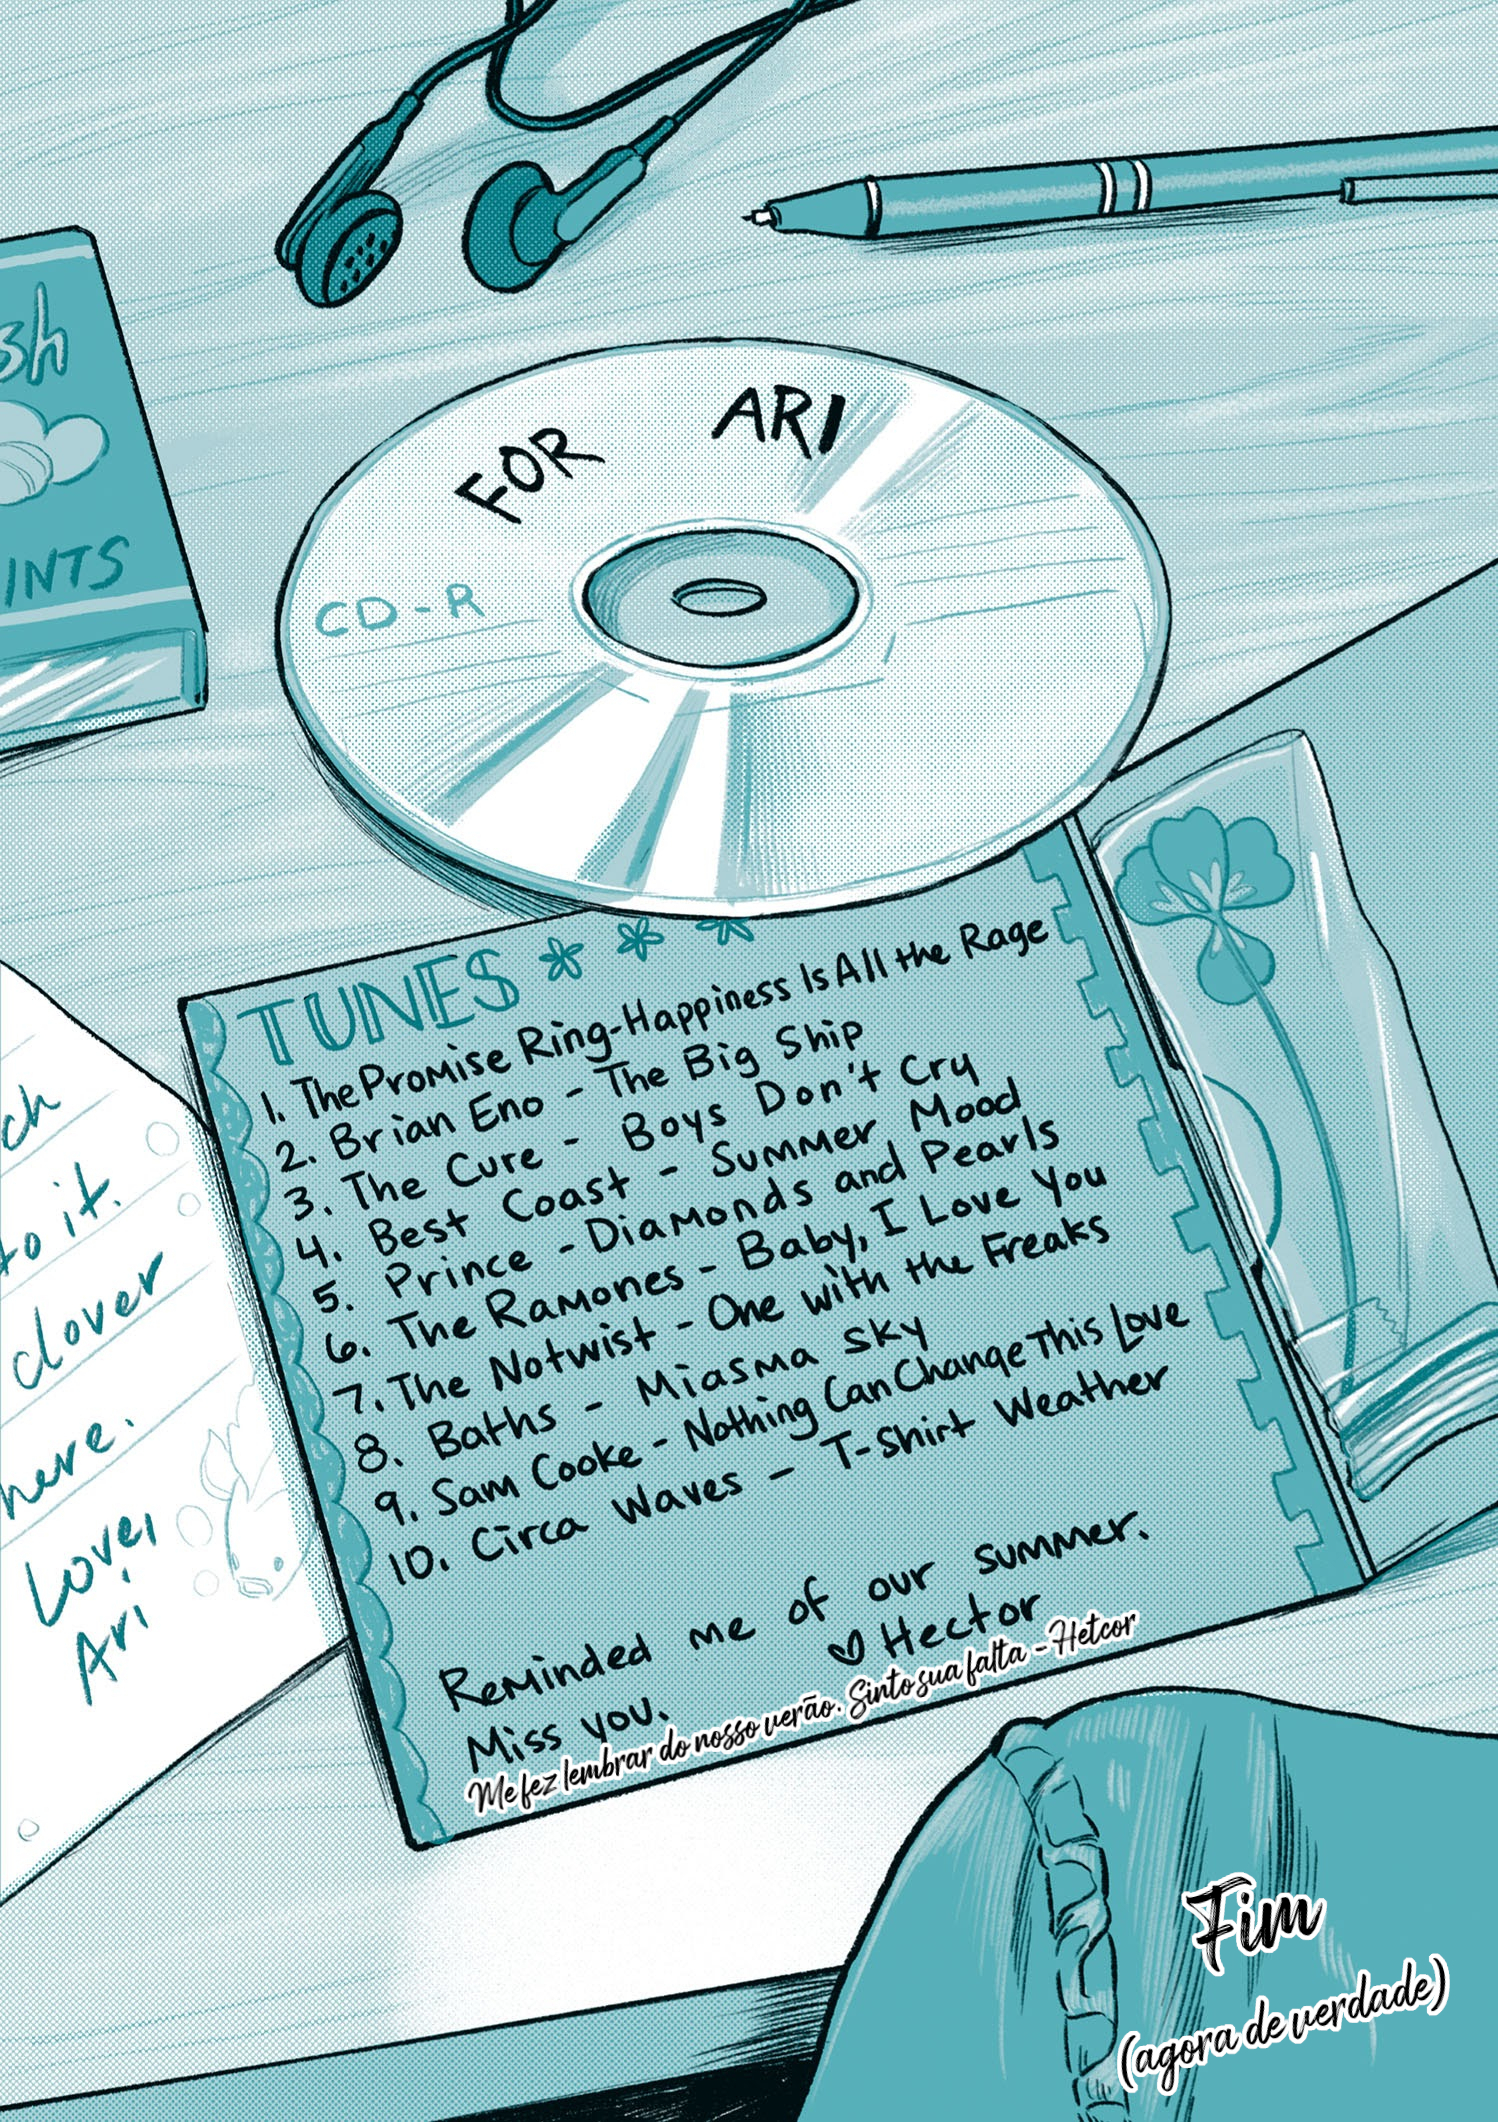 FOR ARI
CD-R
INTS
TUNES
1. The Promise Ring-Happiness Is All the Rage
2. Brian Eno - The Big Ship
3. The Cure - Boys Don't Cry
4. Best Coast - Summer Mood
5. Prince - Diamonds and Pearls
6. The Ramones - Baby, I Love You
7. The Notwist - One with the Freaks
8. Baths - Miasma Sky
9. Sam Cooke - Nothing Can Change This Love
10. Circa Waves - T-Shirt Weather
Reminded me of our summer.
Miss you. ♡ Hector
Me fez lembrar do nosso verão. Sinto sua falta - Hetcor
ch
to it.
clover
here.
Love,
Ari
Fim
(agora de verdade)